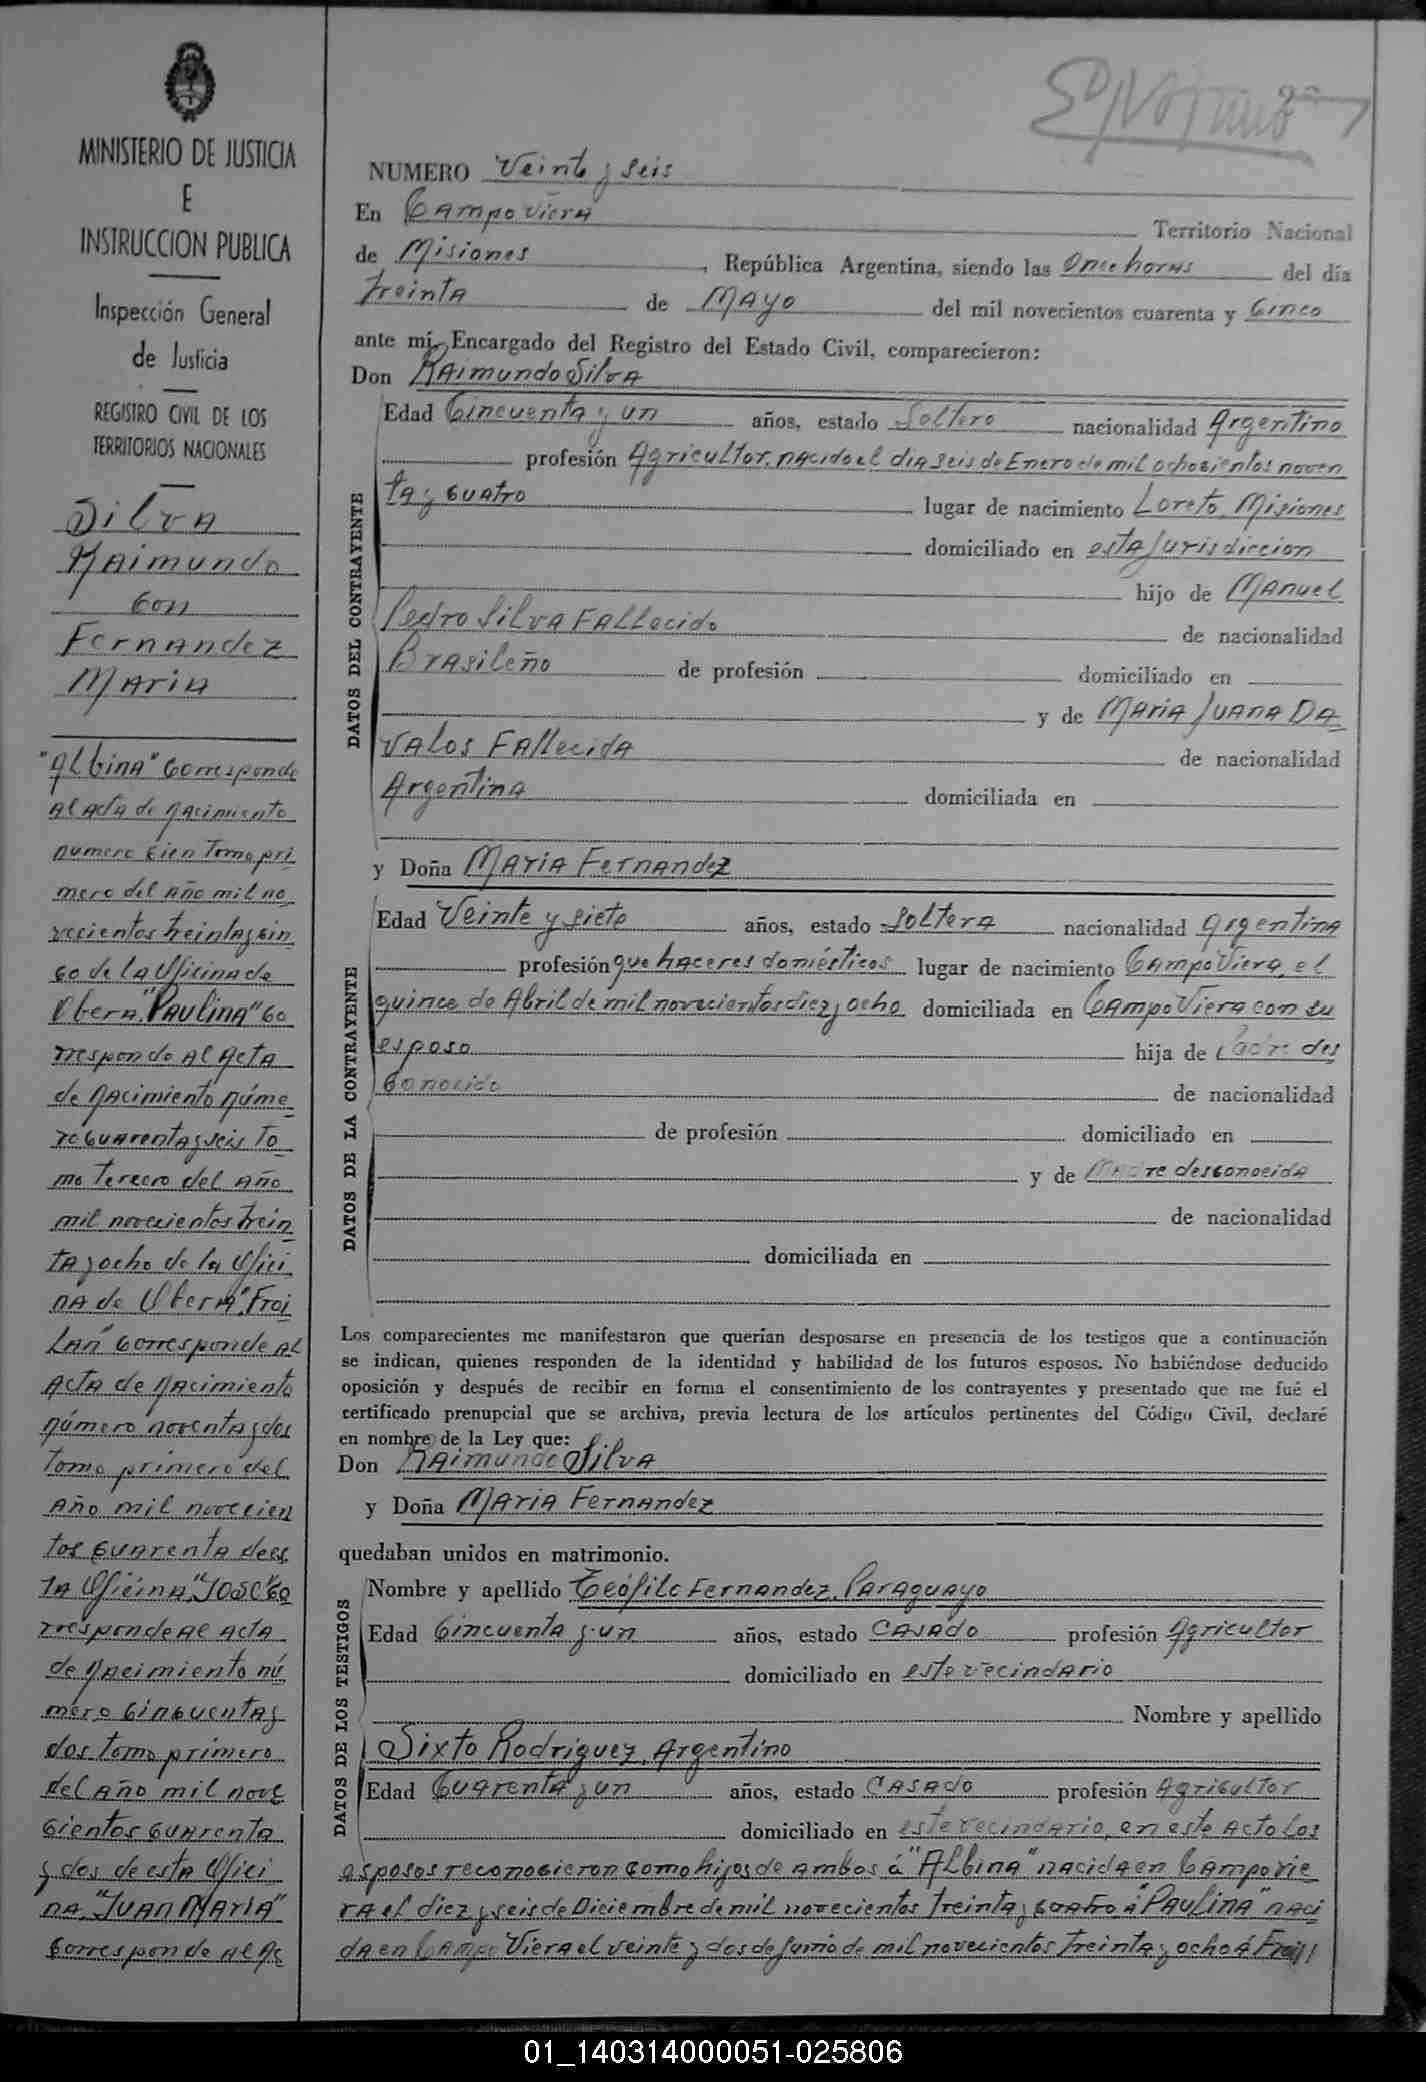 MINISTERIO DE JUSTICIA
E
INSTRUCCION PUBLICA
Inspección General
de Justicia
REGISTRO CIVIL DE LOS
TERRITORIOS NACIONALES
Silva
Raimundo
con
Fernandez
Maria
"Albina" corresponde
al acta de nacimiento
numero cien tomo pri
mero del año mil no
vecientos treinta y cin
co de la oficina de
Obera. "Paulina" co
rresponde al acta
de nacimiento núme
ro cuarenta y seis to
mo tercero del año
mil novecientos trein
ta y ocho de la ofici
na de Obera. "Froi
lan" corresponde al
acta de nacimiento
número noventa y dos
tomo primero del
año mil novecien
tos cuarenta de es
ta oficina, "José" co
rresponde al acta
de nacimiento nú
mero cincuenta y
dos tomo primero
del año mil nove
cientos cuarenta
y dos de esta ofici
na, "Juan Maria"
corresponde al ac
NUMERO Veinte y seis
En Campo Viera Territorio Nacional
de Misiones, República Argentina, siendo las Once horas del día
treinta de Mayo del mil novecientos cuarenta y Cinco
ante mí, Encargado del Registro del Estado Civil, comparecieron:
Don Raimundo Silva
DATOS DEL CONTRAYENTE
Edad Cincuenta y un años, estado Soltero nacionalidad Argentino
profesión Agricultor, nacido el dia seis de Enero de mil ochocientos noven
ta y cuatro lugar de nacimiento Loreto, Misiones
domiciliado en esta Jurisdiccion
hijo de Manuel
Pedro Silva Fallecido de nacionalidad
Brasileño de profesión domiciliado en
y de Maria Juana Da
valos Fallecida de nacionalidad
Argentina domiciliada en
y Doña Maria Fernandez
DATOS DE LA CONTRAYENTE
Edad Veinte y siete años, estado Soltera nacionalidad Argentina
profesión que haceres domésticos lugar de nacimiento Campo Viera, el
quince de Abril de mil novecientos diez y ocho domiciliada en Campo Viera con su
esposo hija de Padre des
conocido de nacionalidad
de profesión domiciliado en
y de Madre desconocida
de nacionalidad
domiciliada en
Los comparecientes me manifestaron que querían desposarse en presencia de los testigos que a continuación
se indican, quienes responden de la identidad y habilidad de los futuros esposos. No habiéndose deducido
oposición y después de recibir en forma el consentimiento de los contrayentes y presentado que me fué el
certificado prenupcial que se archiva, previa lectura de los artículos pertinentes del Código Civil, declaré
en nombre de la Ley que:
Don Raimundo Silva
y Doña Maria Fernandez
quedaban unidos en matrimonio.
DATOS DE LOS TESTIGOS
Nombre y apellido Teófilo Fernandez, Paraguayo
Edad Cincuenta y un años, estado Casado profesión Agricultor
domiciliado en este vecindario
Nombre y apellido
Sixto Rodriguez, Argentino
Edad Cuarenta y un años, estado Casado profesión Agricultor
domiciliado en este vecindario, en este acto los
esposos reconocieron como hijos de ambos á "Albina" nacida en Campo Vie
ra el diez y seis de Diciembre de mil novecientos treinta y cuatro á "Paulina" naci
da en Campo Viera el veinte y dos de Junio de mil novecientos treinta y ocho á Froi
01_140314000051-025806